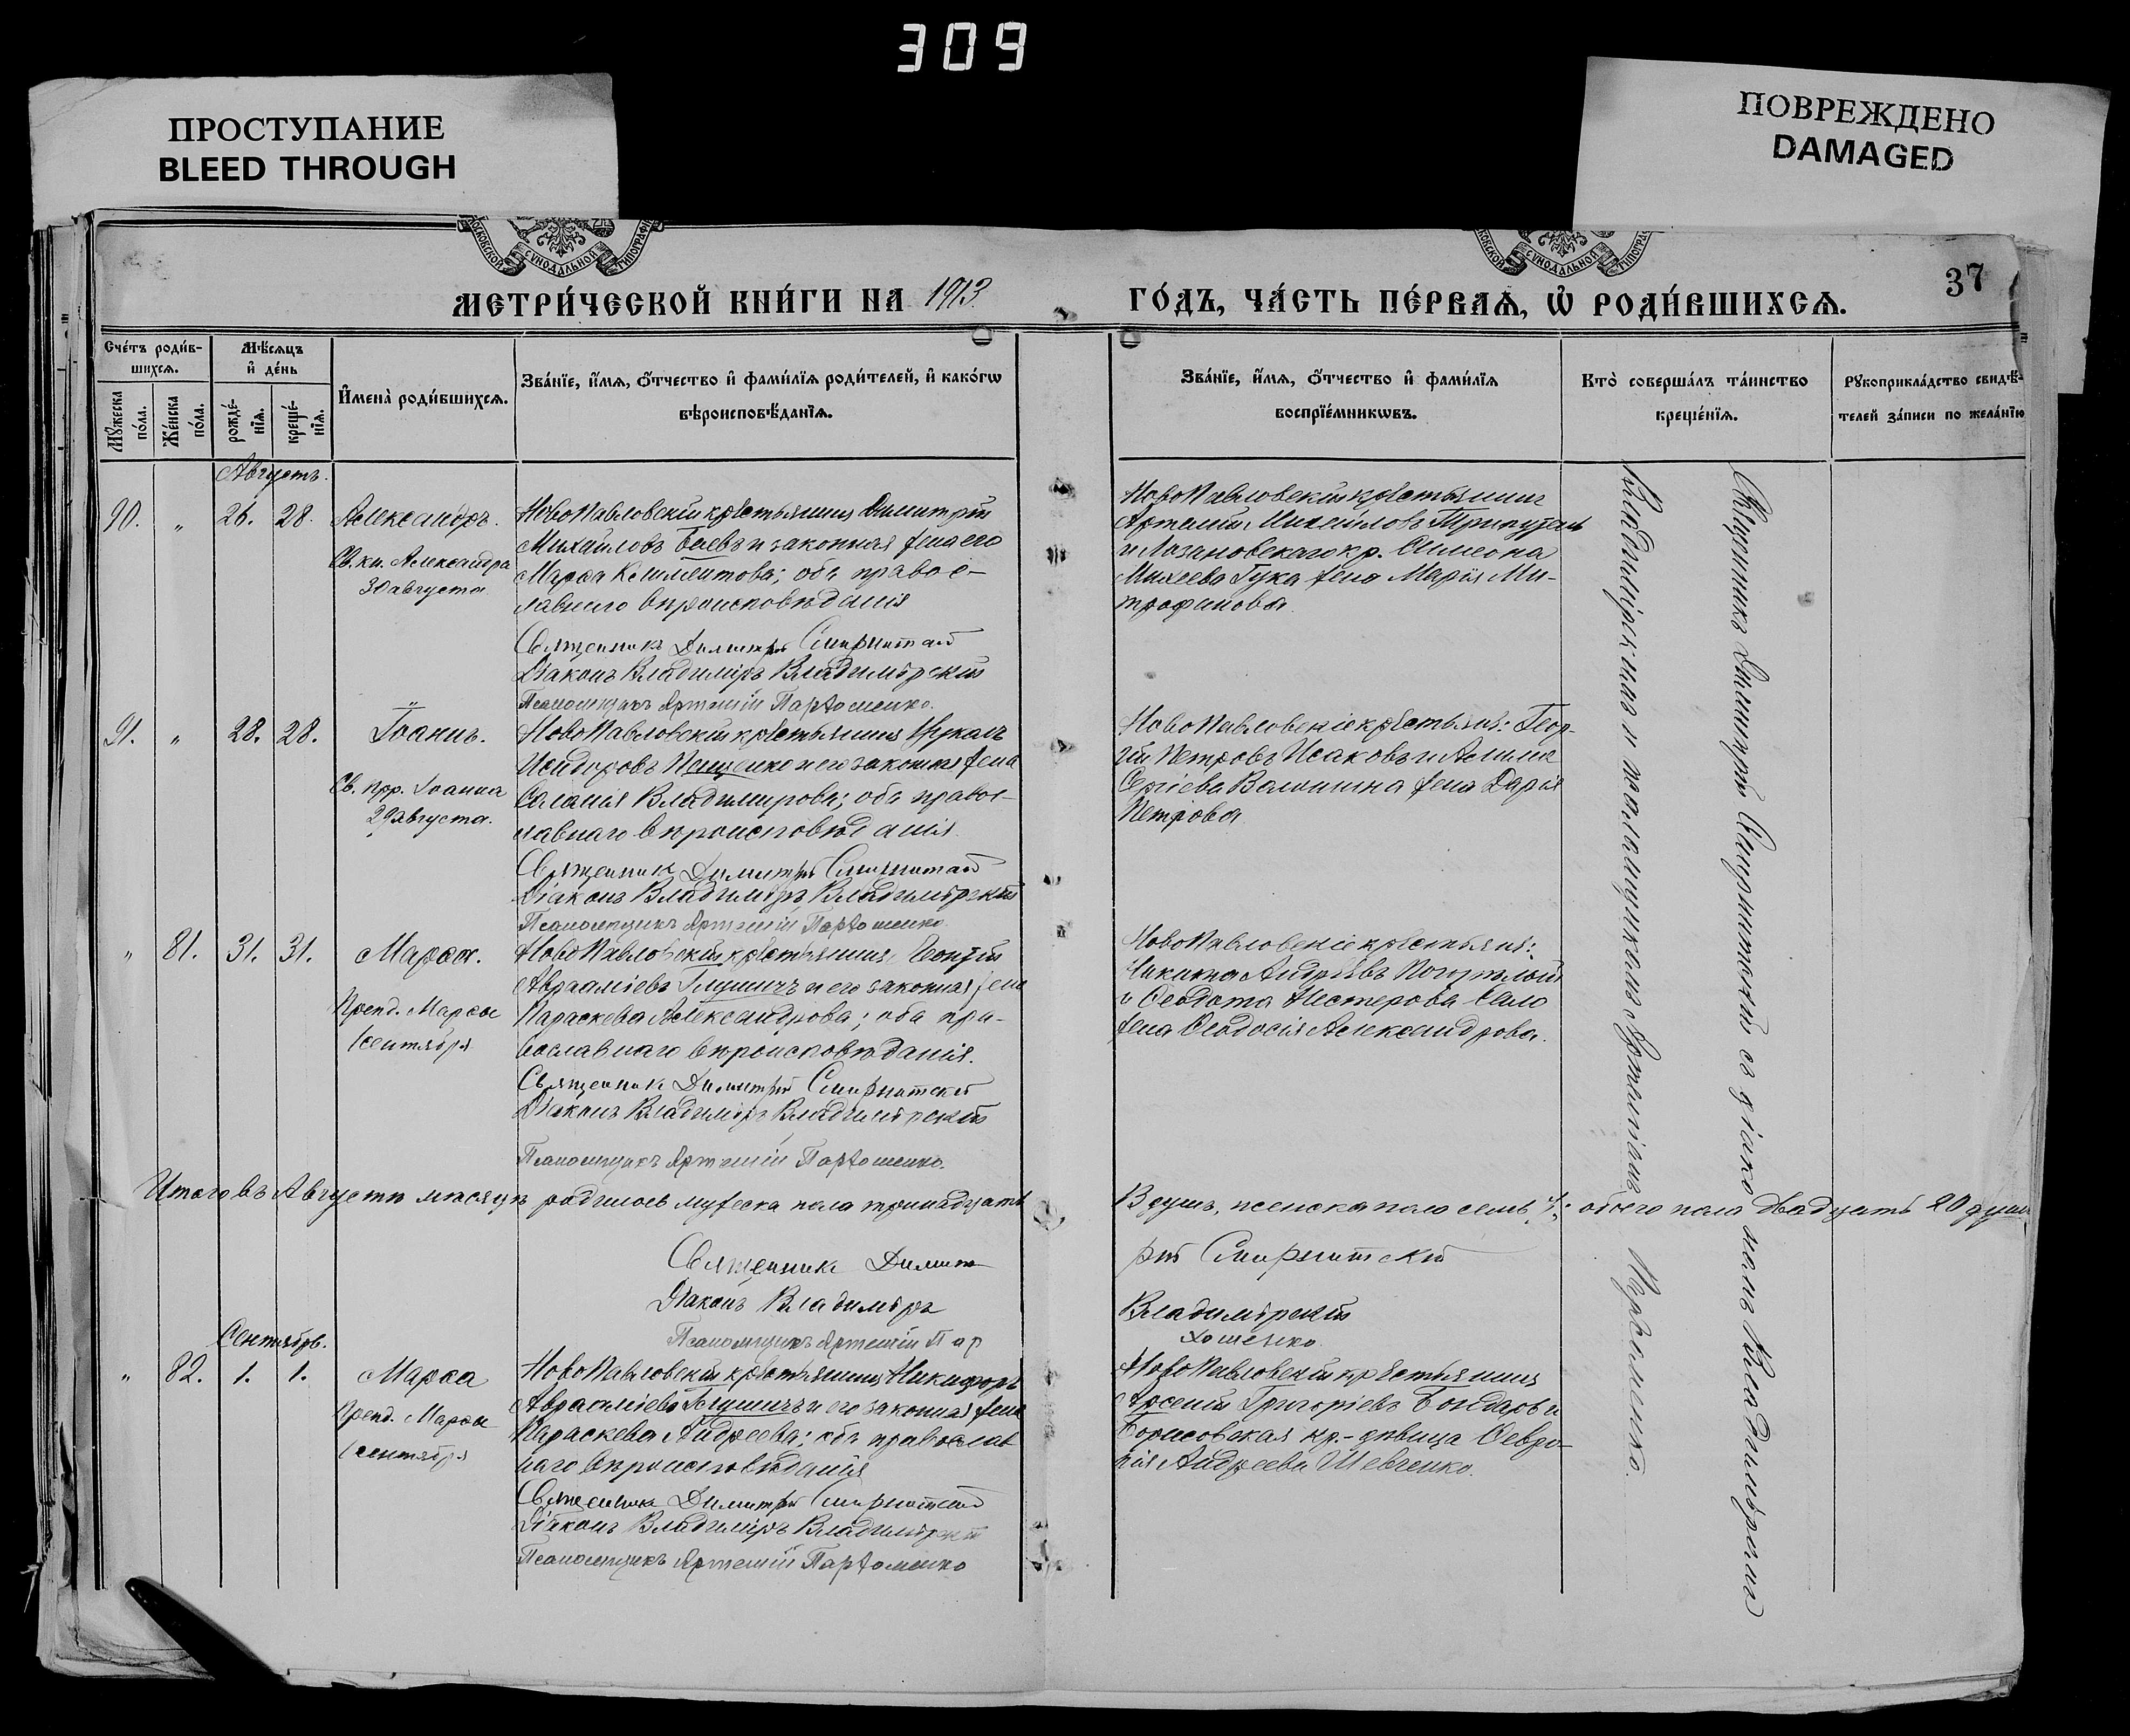 309
ПРОСТУПАНИЕ
BLEED THROUGH
ПОВРЕЖДЕНО
DAMAGED
МОСКОВСКОЙ СУНОДАЛЬНОЙ ТИПОГРАФ
МОСКОВСКОЙ СУНОДАЛЬНОЙ ТИПОГРА
37
МЕТРИ́ЧЕСКОЙ КНИ́ГИ НА 1913. ГО́ДЪ, ЧА́СТЬ ПЕ́РВАѦ, Ѡ҆ РОДИ́ВШИХСѦ.
Сче́тъ роди́в-
шихсѧ.
Мꙋ́жеска по́ла.
Же́нска по́ла.
Мѣ́сѧцъ
и҆ де́нь
рожде́-
нїѧ.
креще́-
нїѧ.
И҆мена̀ роди́вшихсѧ.
Зва́нїе, и҆́мѧ, ѻ҆́тчество и҆ фами́лїѧ роди́телей, и҆ како́гѡ
вѣроисповѣ́данїѧ.
Зва́нїе, и҆́мѧ, ѻ҆́тчество и҆ фами́лїѧ
воспрїе́мникѡвъ.
Кто̀ соверша́лъ та́инство
креще́нїѧ.
Рꙋкоприкла́дство свидѣ́-
телей за́писи по жела́нїю
Августъ.
90. „ 26. 28. Александръ.
Св. кн. Александра
30 августа
НовоПавловскій крестьянинъ Димитрій
Михайловъ Баевъ и законная жена его
Марѳа Климентова; оба правос-
лавнаго вѣроисповѣданія
Священникъ Димитрій Смирнитскій
Діаконъ Владиміръ Владимірскій
Псаломщикъ Артемій Пархоменко.
НовоПавловскій крестьянинъ
Артемій Михайловъ
и Лозановскаго кр. Симеона
Михеева Гука жена Марія Ми-
трофанова.
91. „ 28. 28. Іоаннъ.
Св. прр. Іоанна
29 августа.
НовоПавловскій крестьянинъ Лукачъ
Исидоровъ Пащенко и его законная жена
Меланія Владимирова; оба правос-
лавнаго вѣроисповѣданія.
Священникъ Димитрій Смирнитскій
Діаконъ Владиміръ Владимірскій
Псаломщикъ Артемій Пархоменко
НовоПавловскіе крестьяне: Геор-
гій Петровъ Исаковъ и
Сергіева жена Дарія
Петрова
„ 81. 31. 31. Марѳа.
Препд. Марѳы
1 сентября
НовоПавловскій крестьянинъ Георгій
Авраамiевъ Глушичъ и его законная жена
Параскева Александрова; оба пра-
вославнаго вѣроисповѣданія.
Священникъ Димитрій Смирнитскій
Діаконъ Владиміръ Владимірскій
Псаломщикъ Артемій Пархоменко.
НовоПавловскіе крестьяне:
Никита Андреевъ Погорѣлый
и Ѳеодота Нестерова
жена Ѳеодосія Александрова.
Итого въ Августѣ мѣсяцѣ родилось мужеска пола тринадцать 13 душъ, женска пола семь 7; обоего пола двадцать 20 душъ
Священникъ Димитрій Смирнитскій
Діаконъ Владиміръ Владимірскій
Псаломщикъ Артемій Пархоменко.
Сентябрь.
„ 82. 1. 1. Марѳа
Препд. Марѳы
1 сентября
НовоПавловскій крестьянинъ Никифоръ
Авраамiевъ Глушичъ и его законная жена
Параскева Андреева; оба православ
наго вѣроисповѣданія
Священникъ Димитрій Смирнитскій
Діаконъ Владиміръ Владимірскій
Псаломщикъ Артемій Пархоменко
НовоПавловскій крестьянинъ
Арсеній Григоріевъ Бондарь и
Борисовская кр.-дѣвица Февро-
нія Андреева Шевченко.
Священникъ Димитрій Смирнитскій съ діакономъ Владиміромъ
Владимірскимъ и псаломщикомъ Артеміемъ Пархоменко.